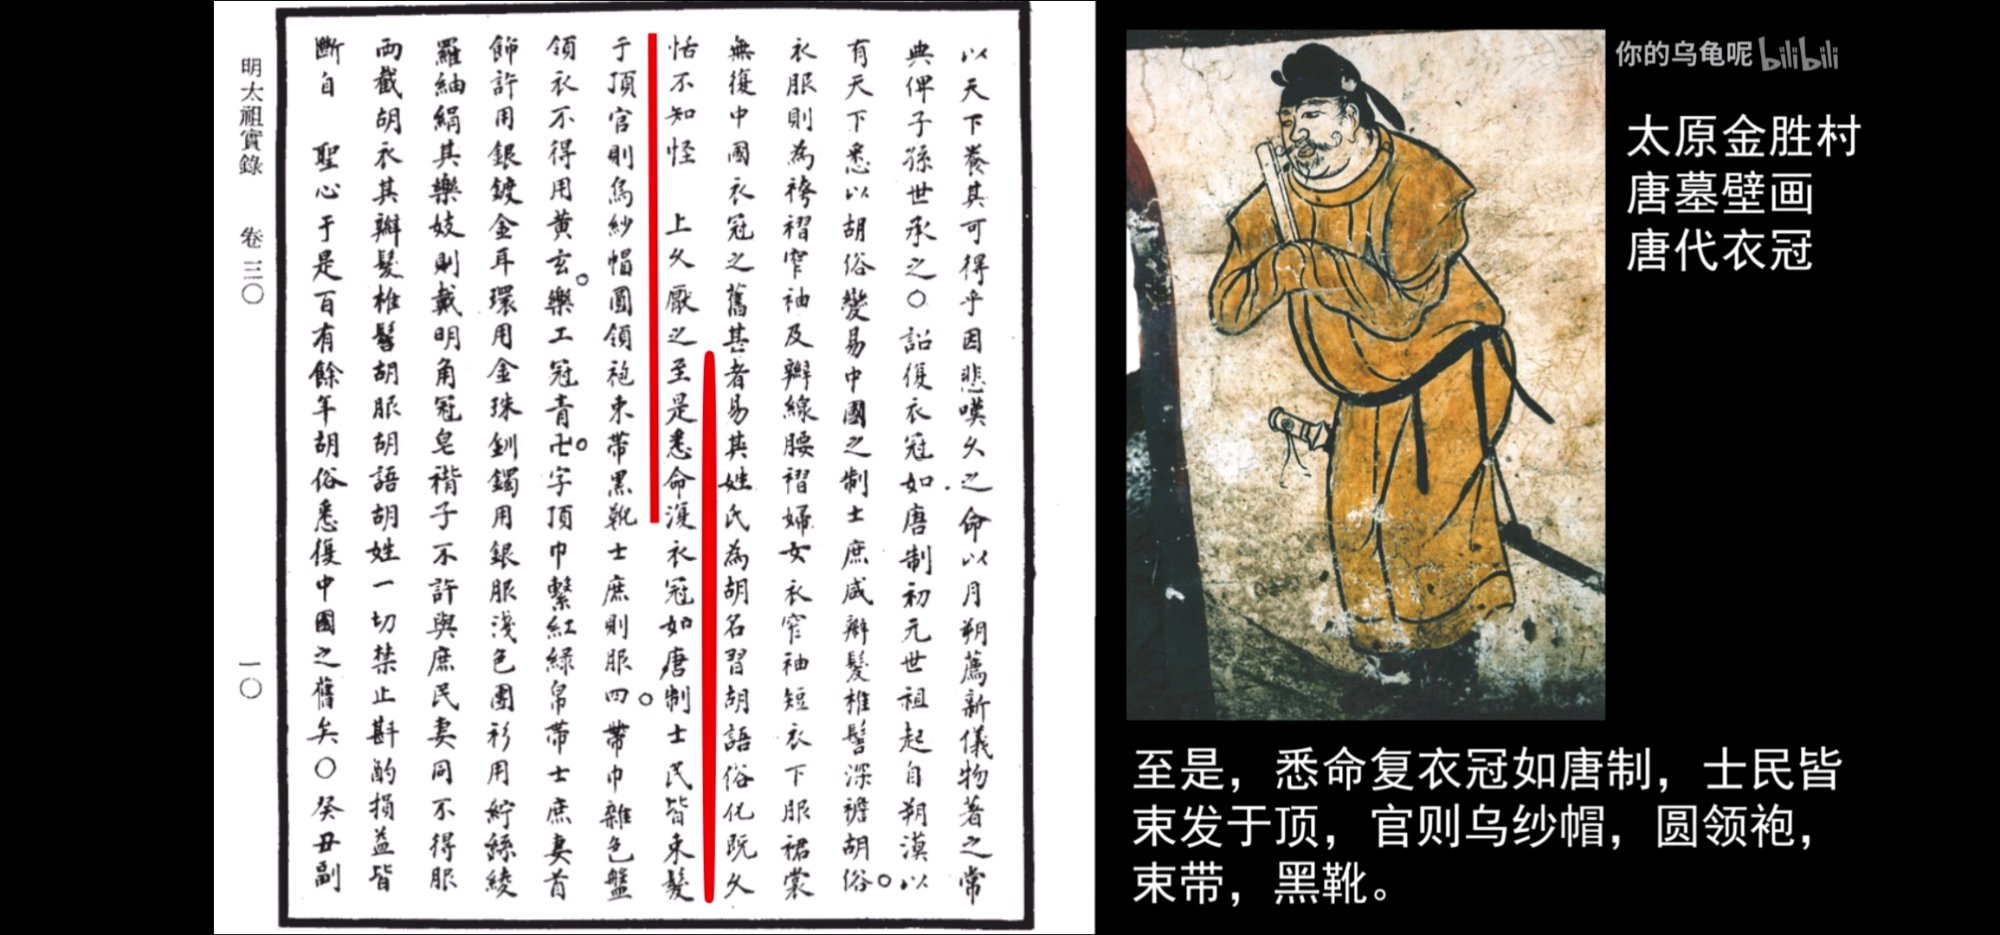 以天下養其可得乎因悲嘆久之命以月朔薦新儀物著之常
典俾子孫世承之〇詔復衣冠如唐制初元世祖起自朔漠以
有天下悉以胡俗變易中國之制士庶咸辮髮椎髻深襜胡俗
衣服則為袴褶窄袖及辮線腰褶婦女衣窄袖短衣下服裙裳
無復中國衣冠之舊甚者易其姓氏為胡名習胡語俗化既久
恬不知怪 上久厭之至是悉命復衣冠如唐制士民皆束髮
于頂官則烏紗帽圓領袍束帶黑靴士庶則服四帶巾雜色盤
領衣不得用黃玄樂工冠青卍字頂巾繫紅綠帛帶士庶妻首
飾許用銀鍍金耳環用金珠釧鐲用銀服淺色團衫用紵絲綾
羅紬絹其樂妓則戴明角冠皂褙子不許與庶民妻同不得服
兩截胡衣其辮髮椎髻胡服胡語胡姓一切禁止斟酌損益皆
斷自 聖心于是百有餘年胡俗悉復中國之舊矣〇癸丑副
明太祖實錄 卷三〇
一〇
你的乌龟呢 bilibili
太原金胜村
唐墓壁画
唐代衣冠
至是，悉命复衣冠如唐制，士民皆
束发于顶，官则乌纱帽，圆领袍，
束带，黑靴。